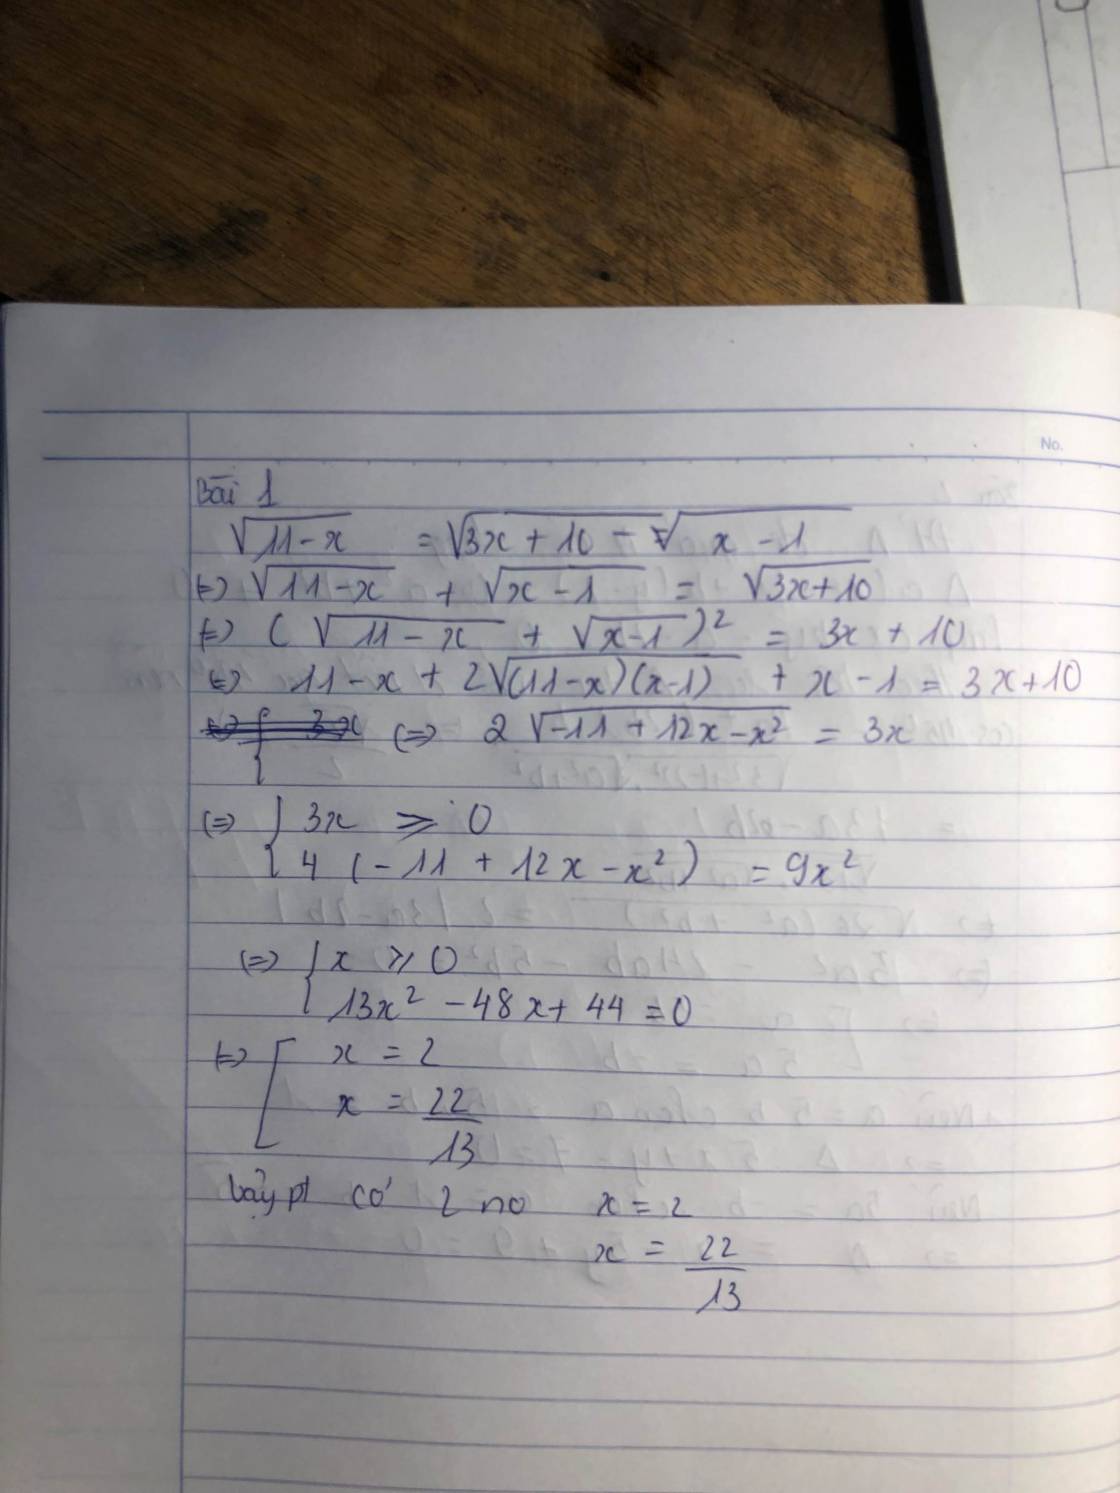 No.
Bài 1
√11-x = √3x+10 - √x-1
(=) √11-x + √x-1 = √3x+10
(=) (√11-x + √x-1)² = 3x+10
(=) 11-x + 2√(11-x)(x-1) + x-1 = 3x+10
(=) 2√-11+12x-x² = 3x
(=) { 3x ⩾ 0
4(-11+12x-x²) = 9x²
(=) { x ⩾ 0
13x²-48x+44=0
(=) [ x = 2
x = 22/13
Vậy pt có 2 no x = 2
x = 22/13